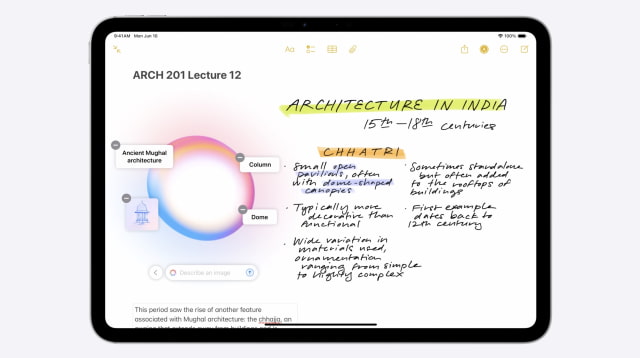 9:41AM Mon Jun 10
100%
Aa
ARCH 201 Lecture 12
ARCHITECTURE IN INDIA
15th – 18th centuries
Ancient Mughal
architecture
Column
Dome
Describe an image
CHHATRI
• Small open
pavilions, often
with dome-shaped
canopies
• Typically more
decorative than
functional
• Wide variation in
materials used,
ornamentation
ranging from simple
to highly complex
• Sometimes standalone
but often added
to the rooftops of
buildings
• First example
dates back to
12th century
This period saw the rise of another feature
associated with Mughal architecture: the chhajja, an